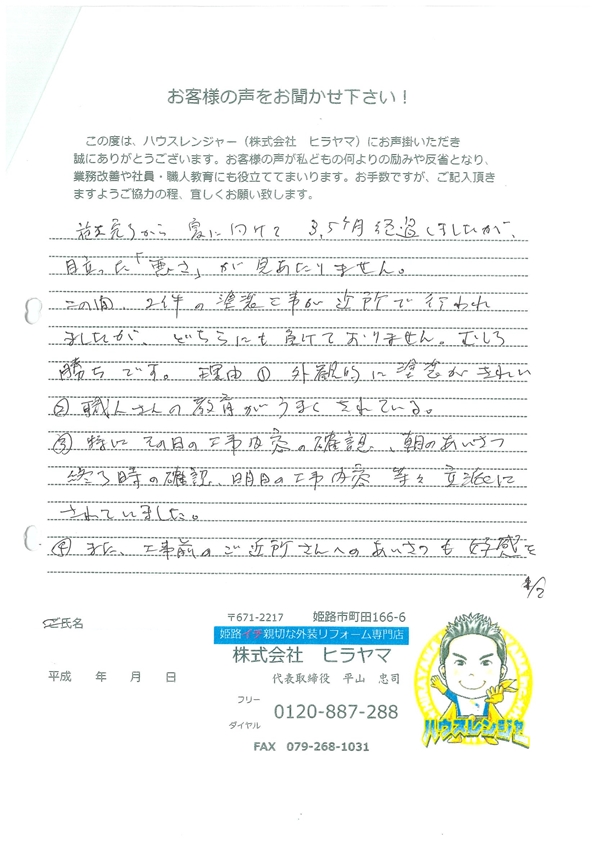 お客様の声をお聞かせ下さい！
この度は、ハウスレンジャー（株式会社　ヒラヤマ）にお声掛いただき
誠にありがとうございます。お客様の声が私どもの何よりの励みや反省となり、
業務改善や社員・職人教育にも役立ててまいります。お手数ですが、ご記入頂き
ますようご協力の程、宜しくお願い致します。
から 夏に向けて 3,5ヶ月 経過しましたが、
目立った「悪さ」が見あたりません。
この間、2件の塗装工事が近所で行われ
ましたが、どちらにも負けておりません。むしろ
勝ちです。理由 ① 外観的に塗装がきれい
② 職人さんの教育がうまくされている。
③ 特にその日の工事内容の確認、朝のあいさつ
終了時の確認、明日の工事内容 等々 立派に
されていました。
④ また、工事前のご近所さんへのあいさつも 好感を
1/2
ご氏名
平成　年　月　日
〒671-2217　姫路市町田166-6
姫路イチ親切な外装リフォーム専門店
株式会社　ヒラヤマ
代表取締役　平山　忠司
フリー
ダイヤル
0120-887-288
FAX　079-268-1031
ハウスレンジャー